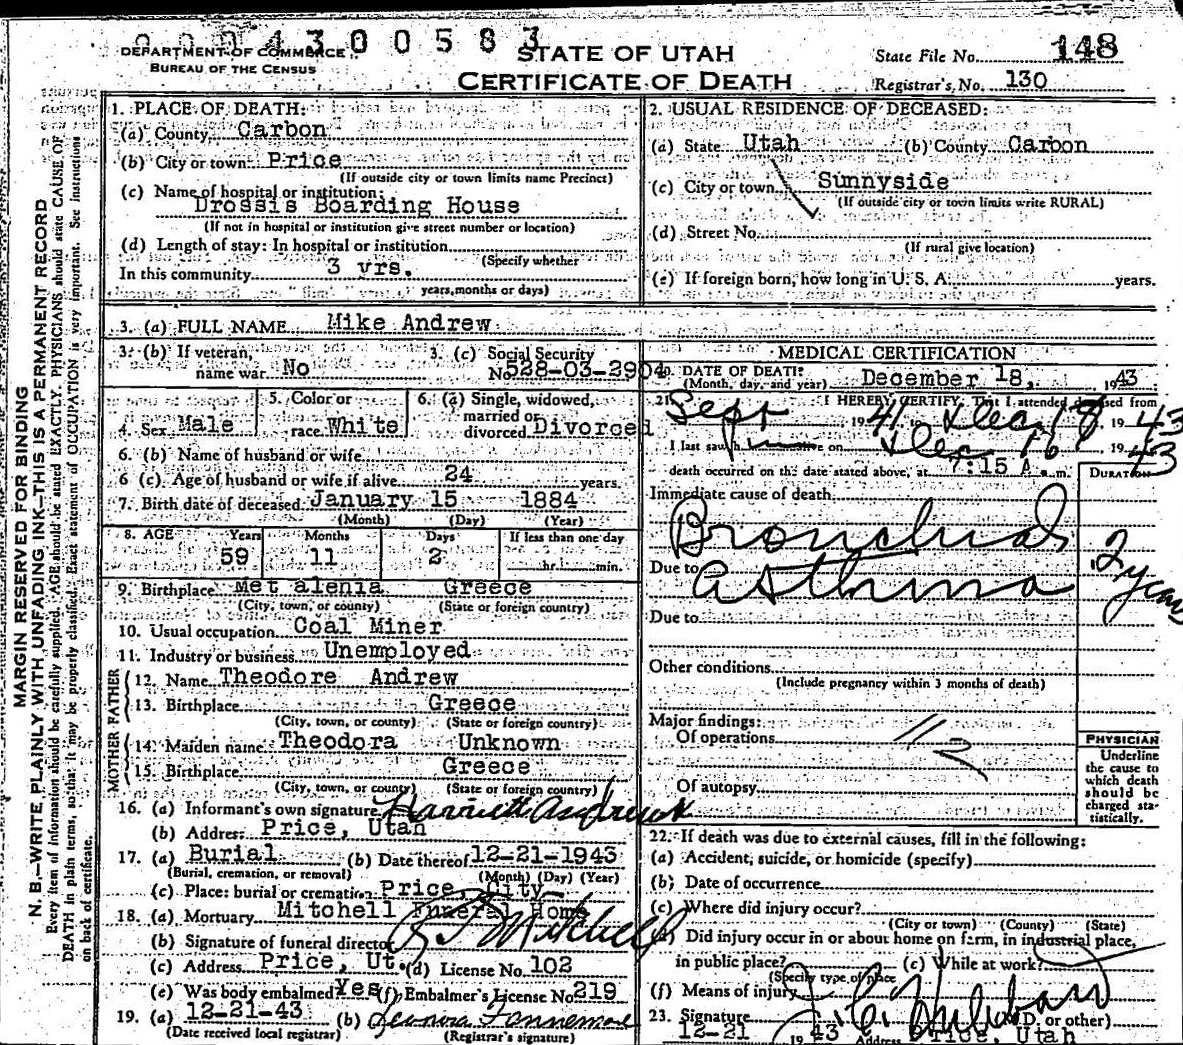 00043 0 0 5 8 3
DEPARTMENT OF COMMERCE
BUREAU OF THE CENSUS
STATE OF UTAH
CERTIFICATE OF DEATH
State File No. 148
Registrar's No. 130
MARGIN RESERVED FOR BINDING
N. B.—WRITE PLAINLY WITH UNFADING INK—THIS IS A PERMANENT RECORD
Every item of information should be carefully supplied. AGE should be stated EXACTLY. PHYSICIANS should state CAUSE OF
DEATH in plain terms, so that it may be properly classified. Exact statement of OCCUPATION is very important. See instructions
on back of certificate.
1. PLACE OF DEATH:
(a) County Carbon
(b) City or town Price
(If outside city or town limits name Precinct)
(c) Name of hospital or institution:
Drossis Boarding House
(If not in hospital or institution give street number or location)
(d) Length of stay: In hospital or institution
(Specify whether
In this community 3 yrs.
years, months or days)
2. USUAL RESIDENCE OF DECEASED:
(a) State Utah (b) County Carbon
(c) City or town Sunnyside
(If outside city or town limits write RURAL)
(d) Street No.
(If rural give location)
(e) If foreign born, how long in U. S. A. years.
3. (a) FULL NAME Mike Andrew
3. (b) If veteran,
name war No
3. (c) Social Security
No. 528-03-2904
4. Sex Male
5. Color or
race White
6. (a) Single, widowed,
married or
divorced Divorced
6. (b) Name of husband or wife
6 (c). Age of husband or wife if alive 24 years.
7. Birth date of deceased January 15 1884
(Month) (Day) (Year)
8. AGE Years Months Days If less than one day
59 11 2 hr. min.
9. Birthplace Met alenia Greece
(City, town, or county) (State or foreign country)
10. Usual occupation Coal Miner
11. Industry or business Unemployed
FATHER
12. Name Theodore Andrew
13. Birthplace Greece
(City, town, or county) (State or foreign country)
MOTHER
14. Maiden name Theodora Unknown
15. Birthplace Greece
(City, town, or county) (State or foreign country)
16. (a) Informant's own signature Harriett Andrews
(b) Address Price, Utah
17. (a) Burial (b) Date thereof 12-21-1943
(Burial, cremation, or removal) (Month) (Day) (Year)
(c) Place: burial or cremation Price, City
18. (a) Mortuary Mitchell Funeral Home
(b) Signature of funeral director Mitchell
(c) Address Price, Ut. (d) License No. 102
(e) Was body embalmed Yes (f) Embalmer's License No. 219
19. (a) 12-21-43 (b)
(Date received local registrar) (Registrar's signature)
MEDICAL CERTIFICATION
20. DATE OF DEATH:
(Month, day, and year) December 18, 1943
21. I HEREBY CERTIFY, That I attended deceased from
Sept 1941 to Dec 18 1943
I last saw him on Dec 16 1943
death occurred on the date stated above, at 7:15 A. m.
DURATION
Immediate cause of death
Bronchial
Due to asthma
2 years
Due to
Other conditions
(Include pregnancy within 3 months of death)
Major findings:
Of operations
Of autopsy
PHYSICIAN
Underline
the cause to
which death
should be
charged sta-
tistically.
22. If death was due to external causes, fill in the following:
(a) Accident, suicide, or homicide (specify)
(b) Date of occurrence
(c) Where did injury occur?
(City or town) (County) (State)
(d) Did injury occur in or about home on farm, in industrial place,
in public place? (e) While at work?
(Specify type of place
(f) Means of injury
23. Signature (M.D. or other)
12-21 1943 Address Price, Utah